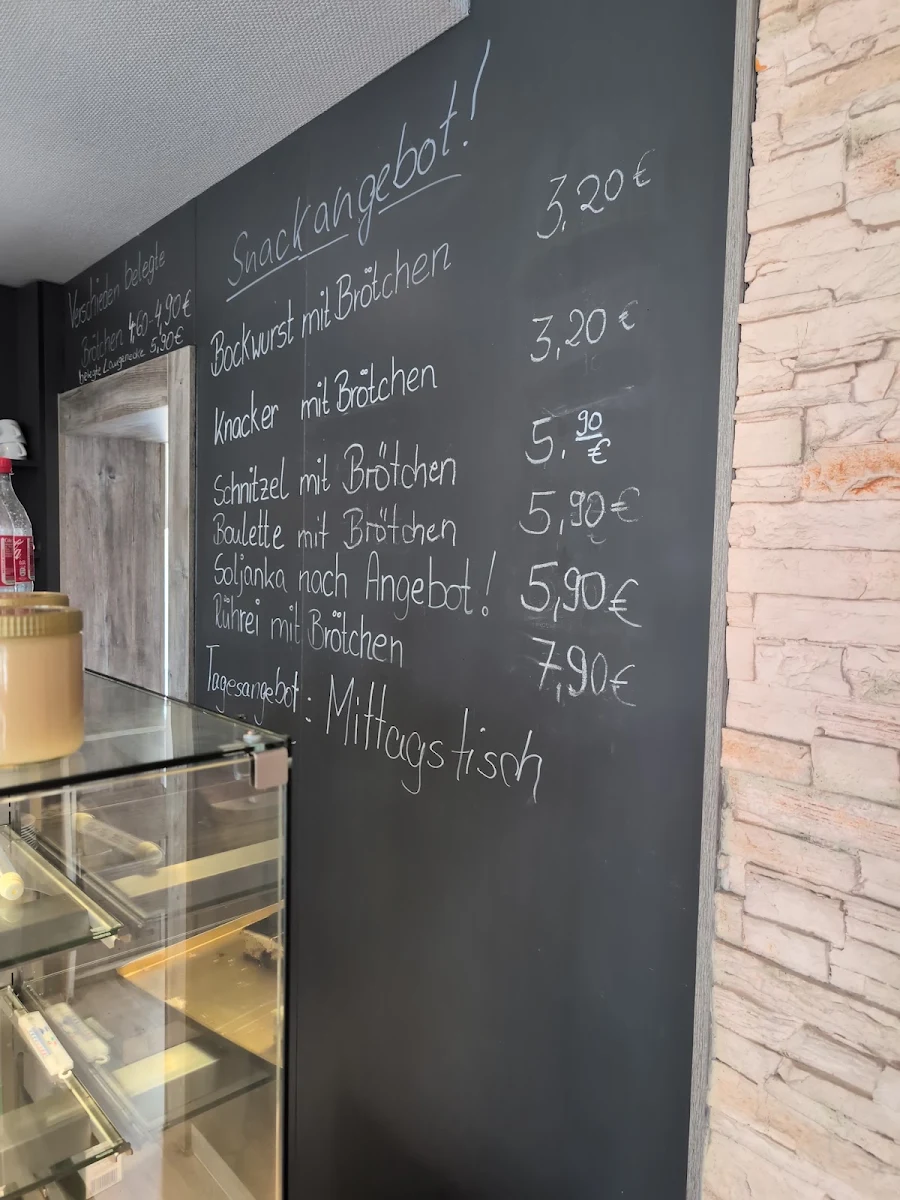 Verschieden belegte
Brötchen 4,60-4,90€
belegte Laugenecke 5,90€
Snackangebot!
Bockwurst mit Brötchen 3,20€
Knacker mit Brötchen 3,20€
Schnitzel mit Brötchen 5.90€
Boulette mit Brötchen 5,90€
Soljanka nach Angebot! 5,90€
Rührei mit Brötchen 7,90€
Tagesangebot: Mittagstisch